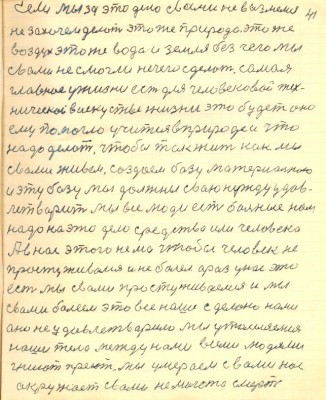 Если мы за это дело с вами не возмемся
не захочем делот это же природа, это же
воздух это же вода и земля без чего мы
с вами не смогли нечего сделот, самая
главное у жизни ест для человековой тех-
нической в искустве жизни это будет оно
ему помогло учится в природе и что
надо делот, чтобы так жит как мы
с вами живем, создаем базу материально
и эту базу мы должны сваю нужду удов-
летварит мы все люди ест бояные нам
надо на это дело средства или человека
А в нас этого нема чтобы человек не
простуживался и не болел а раз у нас это
ест мы с вами простуживаемся и мы
с вами болеем это все наше сделоно нами
оно не удовлетварило мы утомляемся
наше тело между нами всеми людями
гниют преют. мы умераем с вами нас
окружает с вами немагота смерт
41